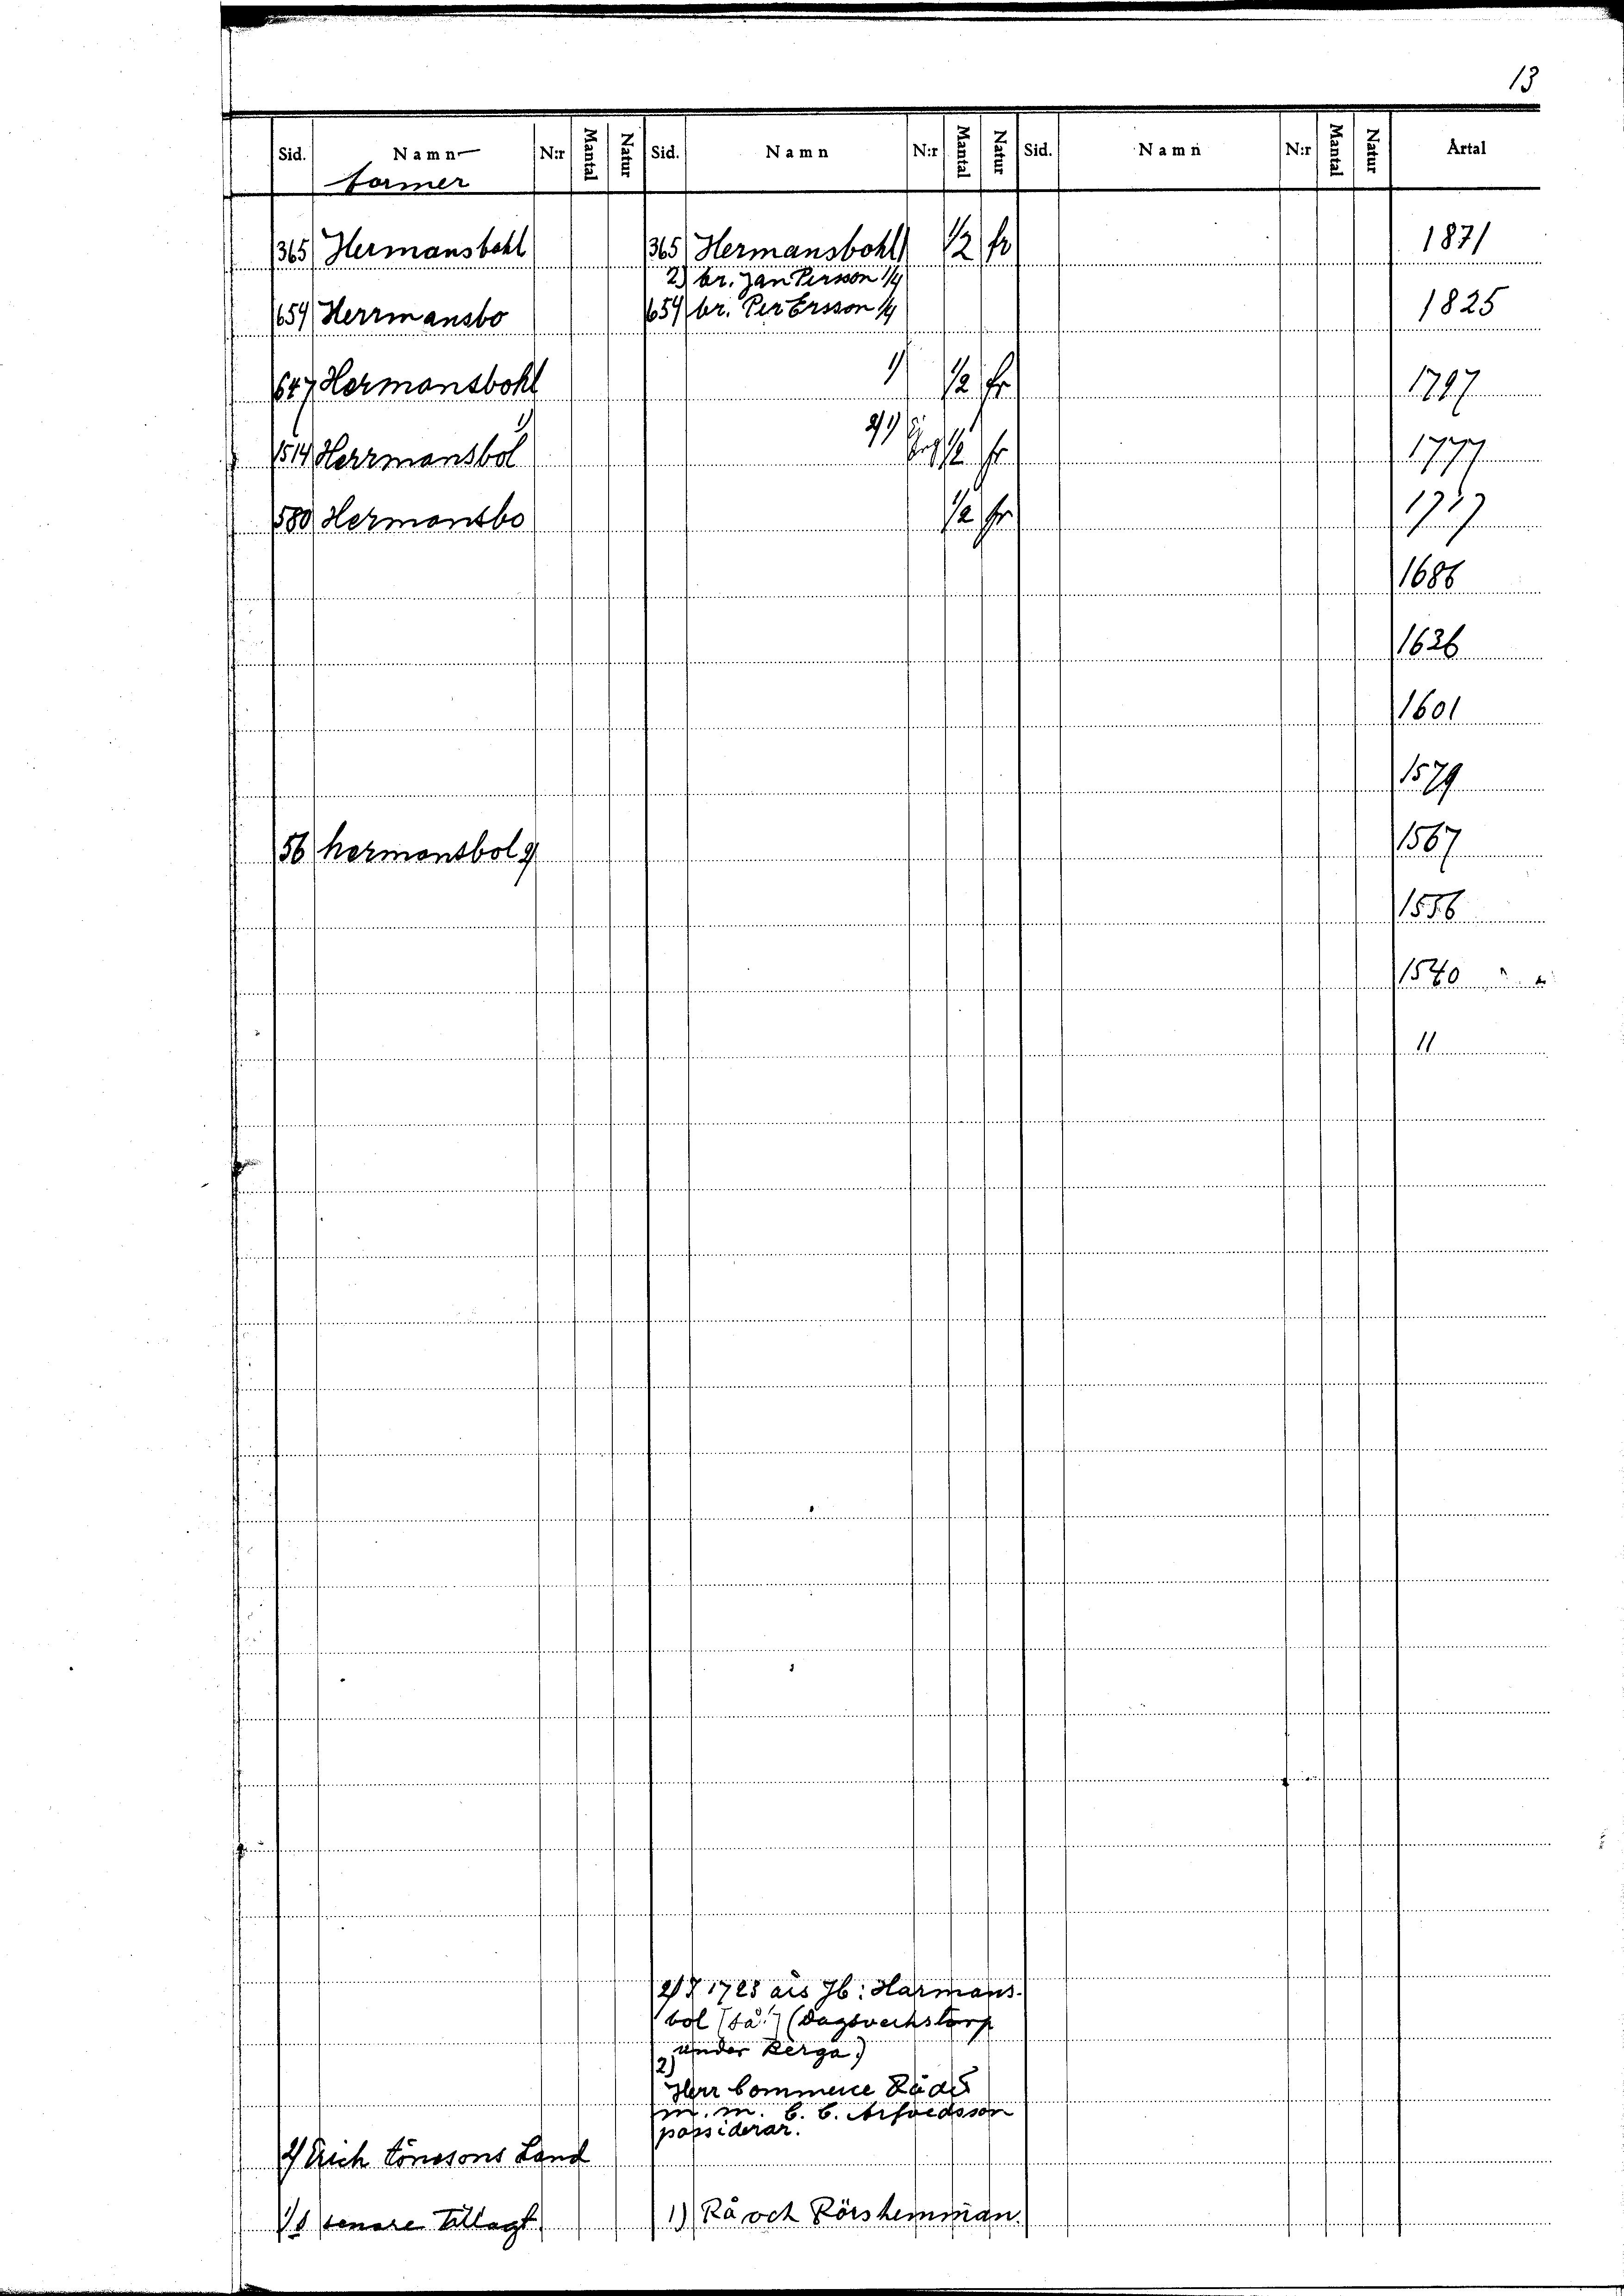 13
Sid. Namn N:r Mantal Natur Sid. Namn N:r Mantal Natur Sid. Namn N:r Mantal Natur Årtal
former
365 Hermansbohl 365 Hermansbohl 1) 1/2 fr 1871
2) br. Jan Persson 1/4
659 Herrmansbo 659 br. Per Ersson 1/4 1825
647 Hermansbohl 1) 1/2 fr 1797
1514 Herrmansbol 1) 2) 1) 1/2 fr 1777
580 Hermansbo 1/2 fr 1717
1686
1626
1601
1579
56 hermansbol 2) 1567
1556
1540
11
2) I 1725 års Jb: Harmans-
bol [så!] (Dagsverkstorp
under Berga)
2)
Herr Commerce Rådet
m. m. C. C. Arfvedsson
possiderar.
2) Erich tönssons Land
1) l senare tillagt. 1) Rå och Rörshemman.